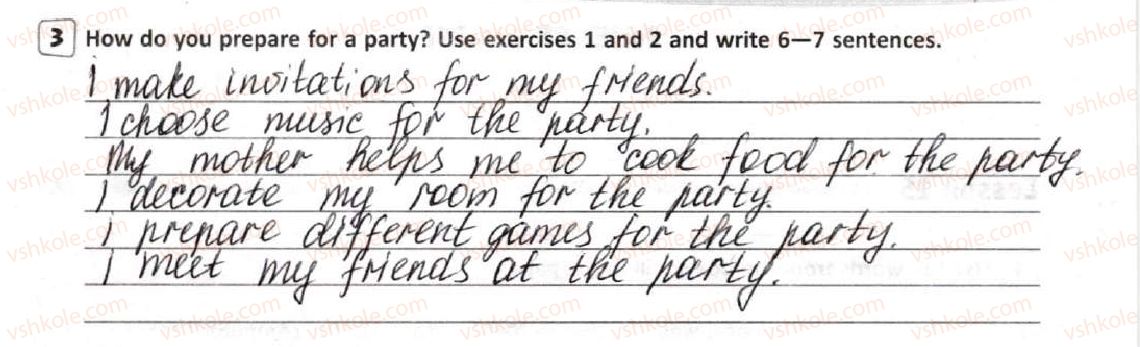 3 How do you prepare for a party? Use exercises 1 and 2 and write 6—7 sentences.
I make invitations for my friends.
I choose music for the party.
My mother helps me to cook food for the party.
I decorate my room for the party.
I prepare different games for the party.
I meet my friends at the party.
vshkole.com